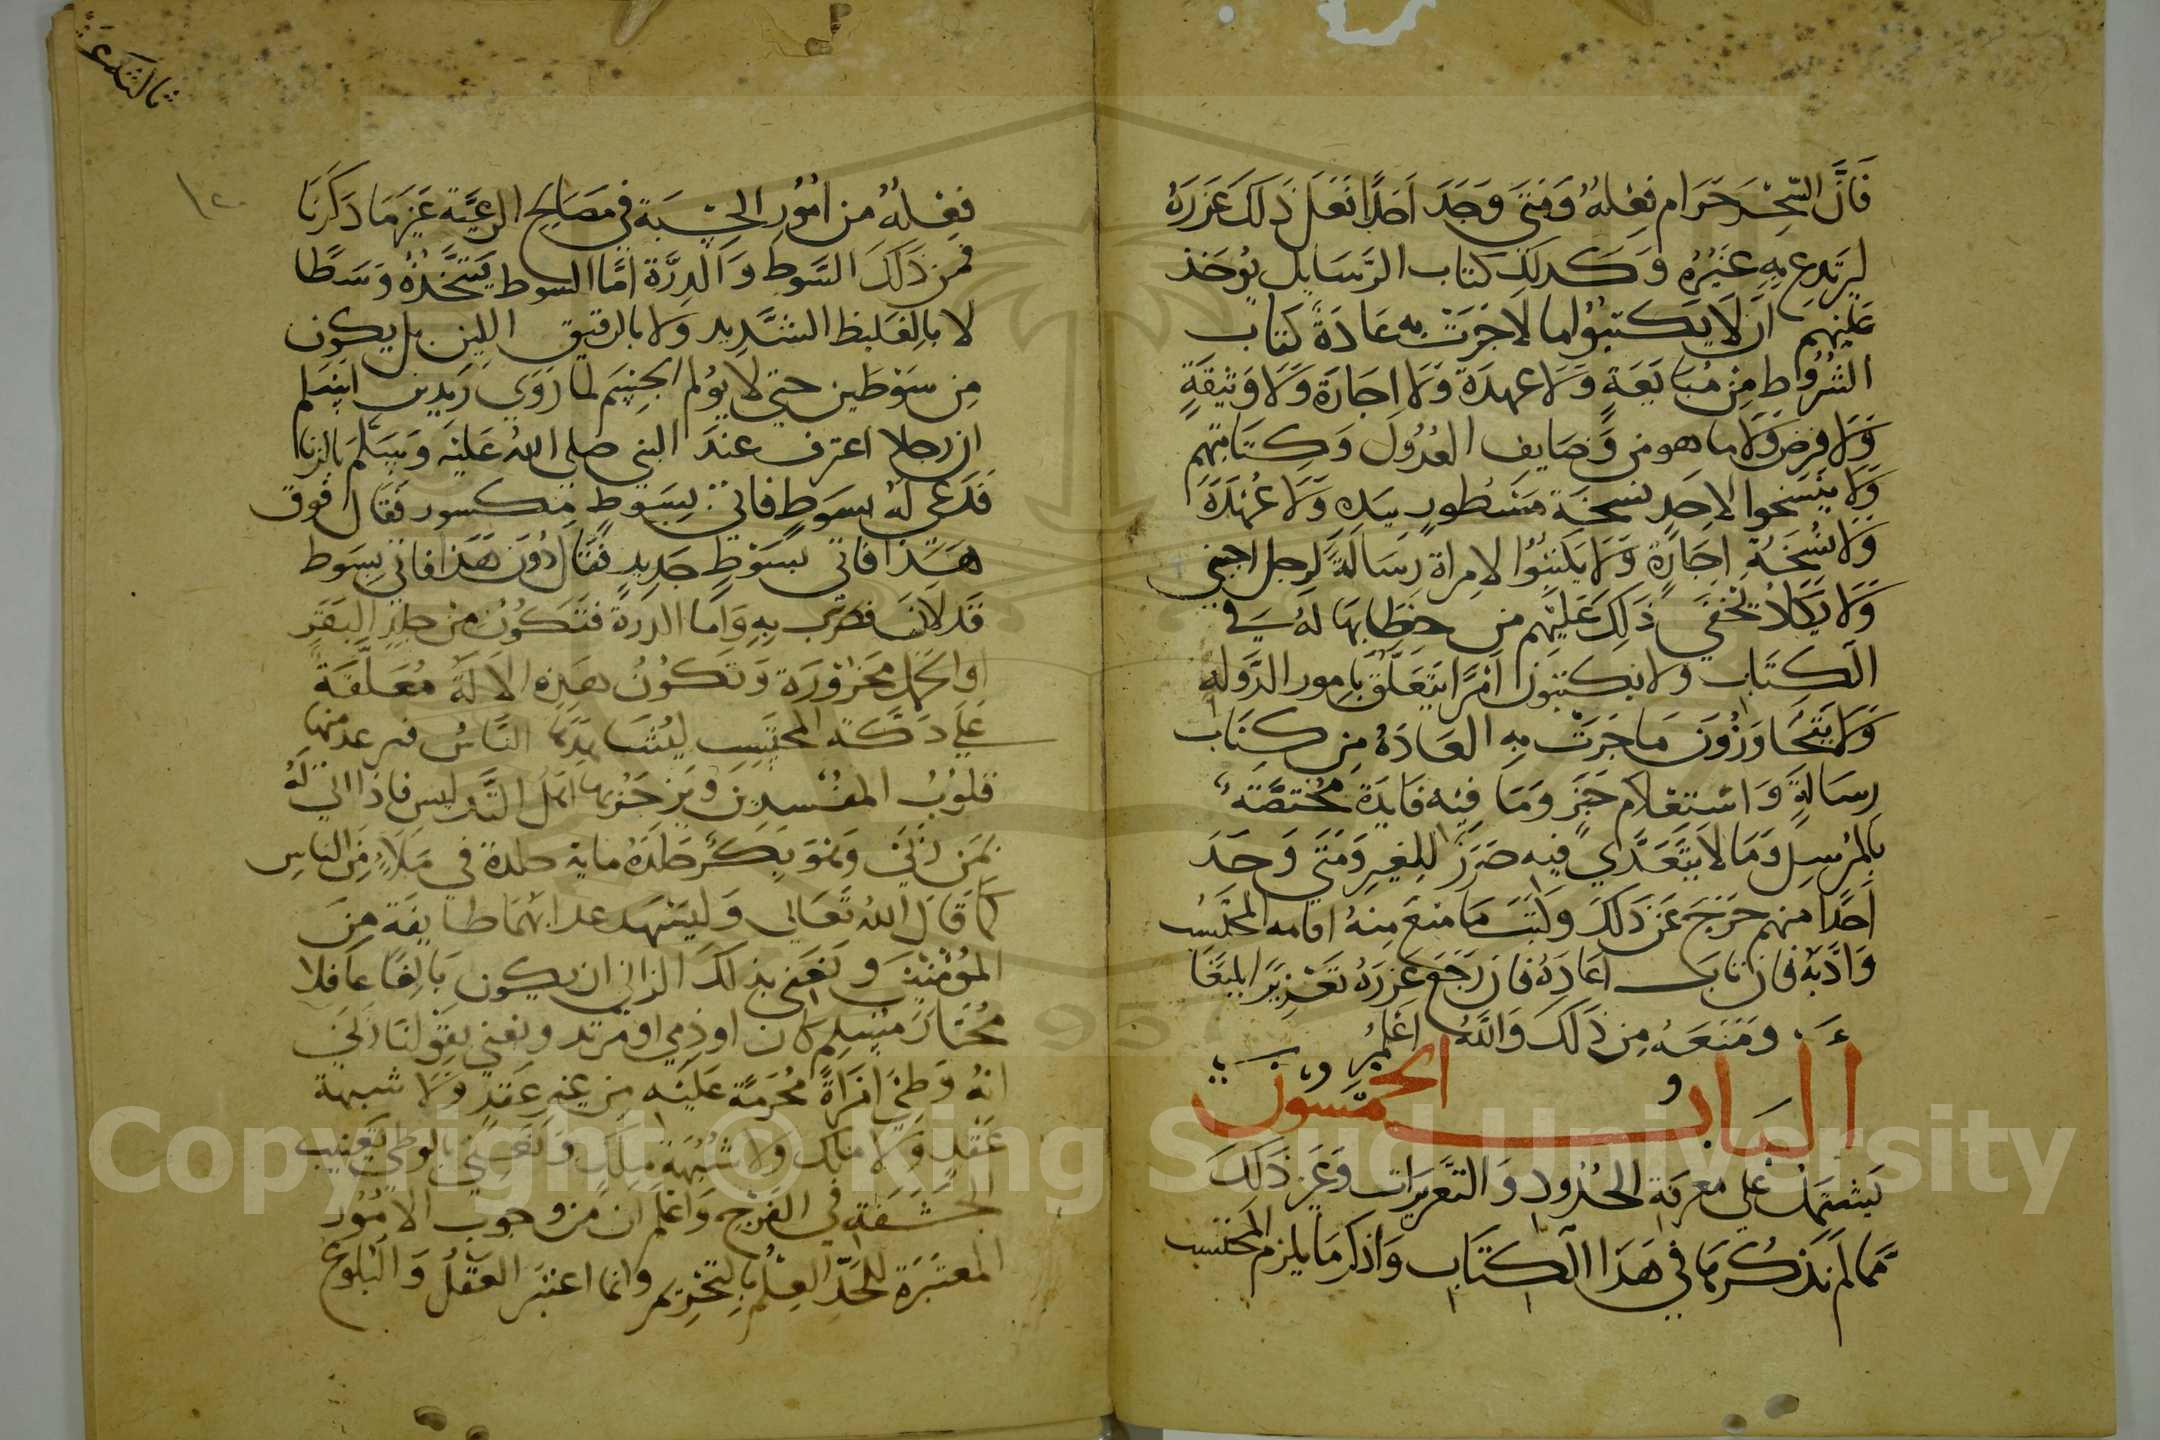 فَانَّ السِّحْرَ حَرَام فِعْلهُ وَمَتَي وَجَدَ اَحَدًا فَعَلَ ذَلكَ عَزَرَهُ
ليرتَدِع بِهِ غَيْرُهُ وَكَذلِكَ كتاب الرَّسَايل يُوخَذ
عَليْهِم ان لَا يَكتبُوُا ما لَا جَرَتْ بِهِ عَادَةً كتاب
الشُرُوُط مِنْ مُبَايَعَةٍ وَلَا عهدَة وَلَا اجَارَة وَلَا وَثيقَةٍ
وَلَا فرض وَلَا ما هو من وَضايف العُدُولَ وَكِتَابتهم
وَلَا ينْسَخوا لاحَدٍ نسخَة مَسْطُورٍ بيَدِهِ وَلَا عُهْدَة
وَلَا نُسْخَةِ اِجَارةٍ وَلَا يكتبُوُا لامراة رِسَالةً لرجل اجنبي
وَلَا يَكَادُ يخْفَي ذَلِكَ عَليْهم من خِطَابهَا لَهُ في
الكِتَاب ولا يكتبون امْرًا يَتَعَلّقُ بِامور الدَّوله
وَلَا يَتَجَاوَزُوُنَ مَا جَرَتْ بِهِ العَادَهُ مِن كِتَاب
رِسَالةٍ وَاسْتِعْلام خَبَرٍ وَمَا فِيْه فَايدَة مُخْتصَّة
بِالمُرْسِلِ وَمَا لَا يَتَعَدَّي فيه ضَرَرْ للغيرِ وَمَتَي وَجَدَ
اَحَدًا منهم خَرَجَ عَنْ ذَلكَ وَكتبَ مَا مُنعَ مِنهُ اقامه المحْتَسبُ
وَادَّبَهُ فان تابَ اعَادَهُ فان رَجَعَ عَزرَهُ تَعْزِيرًا بليغًا
وَمَنَعَهُ مِن ذَلكَ وَاللهُ اعْلمُ
البَابُ الخمسُوْن
يَشتَمِلُ علي معرفة الحُدُودِ وَالتَّعْزِيرَاتِ وَغَيْر ذَلكَ
مَّما لَم نَذكُرهَا في هَذَا الكتَابِ وَاذكرُ مَا يلزم المحْتسب
بالتدعَة
١٢٠
فِعْلهُ من امُوُر الحِسْبَة في مَصَالح الرعِيَّة غَيْر مَا ذَكَرنَا
فمن ذَلكَ السَّوط وَالدِرَّة امَّا السَوط يَتَّخذُهُ وَسَطًا
لا بالغَليظ الشَّدِيد ولا بالرقيق اللّين بل يكون
مِن سَوْطَين حتي لَا يؤلم الجسْم لما رَوَي زيد بن اسْلم
ان رجلا اعترف عندَ النبي صلي الله عَليْه وَسَلّمَ بالزنا
فدَعي لهُ بسَوطٍ فاتي بِسَوطٍ مكسور فقَال فوق
هَذا فاتي بسَوْطٍ جَدِيدٍ فقَال دُوُنَ هَذا فاتي بسَوط
قَد لَانَ فضرب بِهِ وَامَا الدرةَ فتَكُوُن من جلد البَقَر
او الجمل مخرُوزَة وَتكُوُنُ هَذِه الالَةُ مُعَلَّقَةً
عَلي دَكَّة المحتَسِب ليُشَاهِدَها النَّاسُ فيرعد منها
قلوُبُ المفسدِينَ وَينزجَرُ بها اهل التَّدليس فاذا اتي لهُ
بمَن زنيَ وَهْوَ بِكرٌ جَلدَهُ مايه جلدة في مَلَاءٍ منَ الناسِ
كما قَالَ اللهُ تَعَالي وَليَشْهد عذابهُمَا طَايفَة مِنَ
المؤْمْنينَ وَنعَني بذلكَ الزاني ان يكون بَالغًا عَاقلا
مُختَارًا مسْلِم كان او ذِمي او مرتد ونعني بقَوْلنَا زَنيَ
انهُ وَطيَ امْرَاةً مُحرَمَّة عَليْه مِن غير عَقدٍ وَلَا شبهة
عَقْدٍ وَلَا ملك ولا شُبْهَة مِلكٍ وَنعَني بالوطي تغيب
الحشَفَة في الفَرْج وَاعْلم ان مَن وجُوب الامُوُر
المعْتبَرَة للحَدِّ العِلْم بِالتَّحْرِيم وانما اعتبر العقل وَالبُلوغ